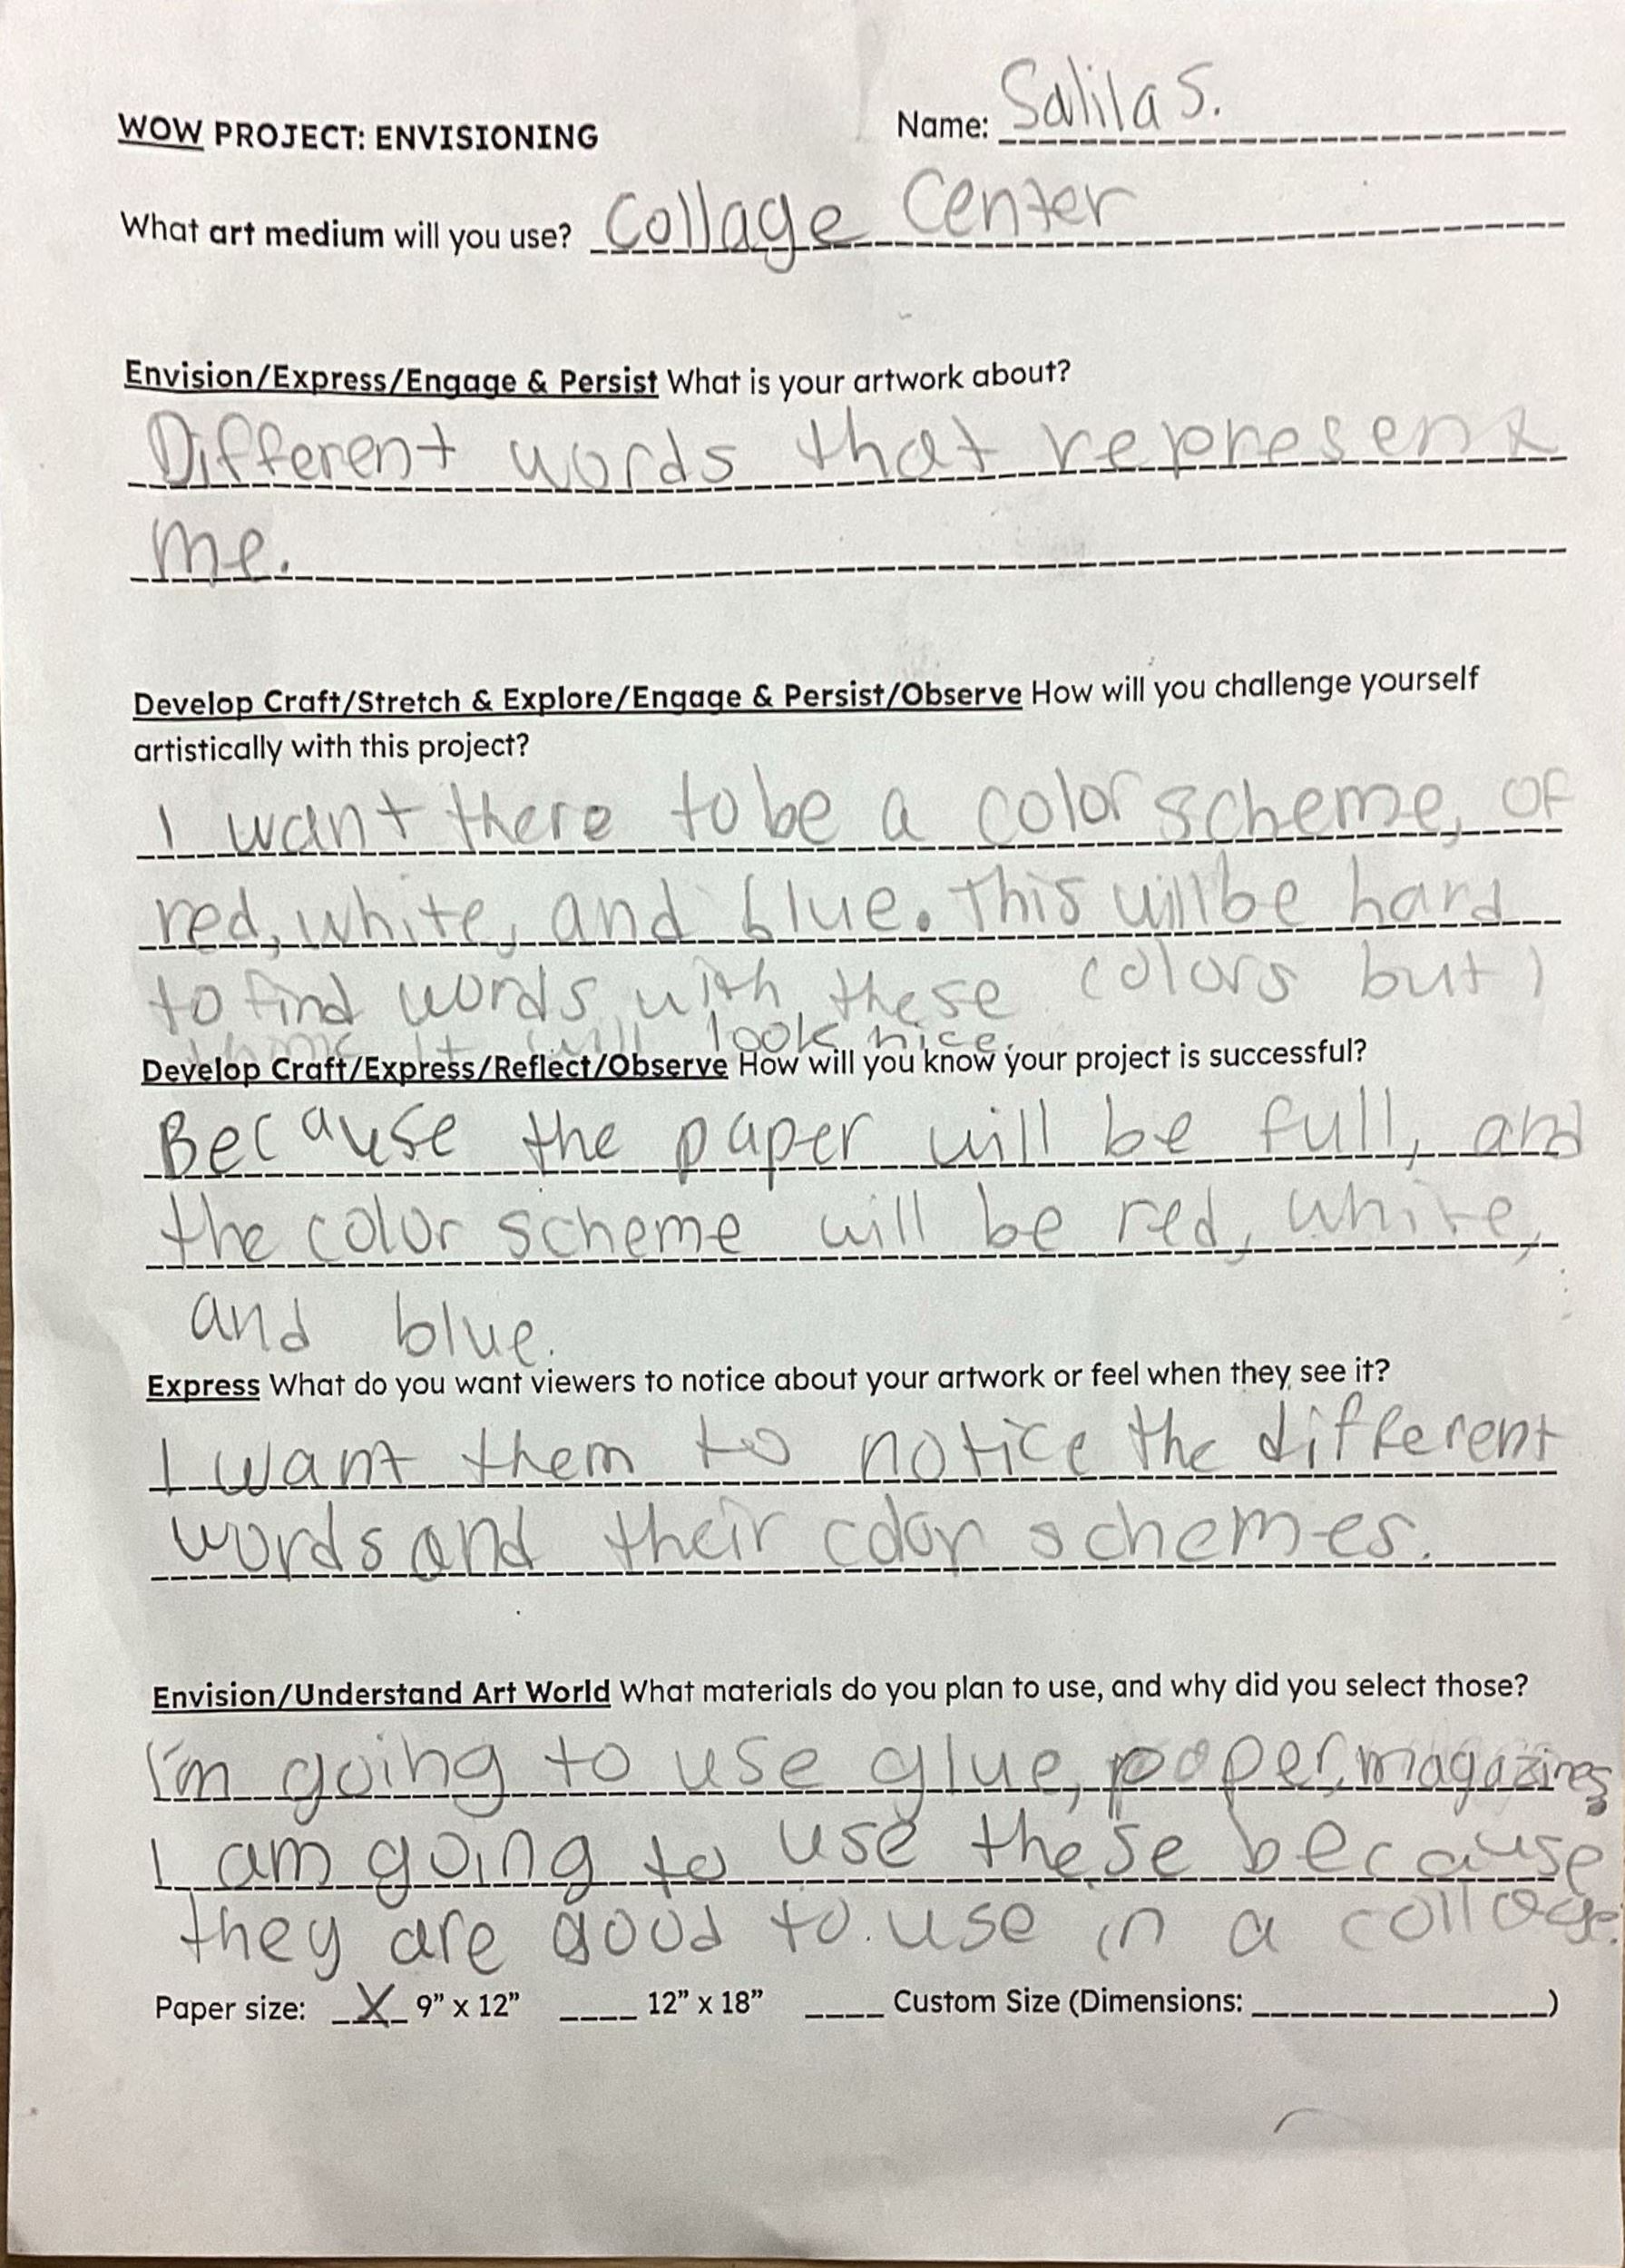 WOW PROJECT: ENVISIONING Name: Salila S.
What art medium will you use? Collage Center
Envision/Express/Engage & Persist What is your artwork about?
Different words that represent
me.
Develop Craft/Stretch & Explore/Engage & Persist/Observe How will you challenge yourself
artistically with this project?
I want there to be a color scheme, of
red, white, and blue. This will be hard
to find words with these colors but I
think it will look nice.
Develop Craft/Express/Reflect/Observe How will you know your project is successful?
Because the paper will be full, and
the color scheme will be red, white,
and blue.
Express What do you want viewers to notice about your artwork or feel when they see it?
I want them to notice the different
words and their color schemes.
Envision/Understand Art World What materials do you plan to use, and why did you select those?
I'm going to use glue, paper, magazines
I am going to use these because
they are good to use in a collage.
Paper size: X 9" x 12" ____ 12" x 18" ____ Custom Size (Dimensions: _______________)